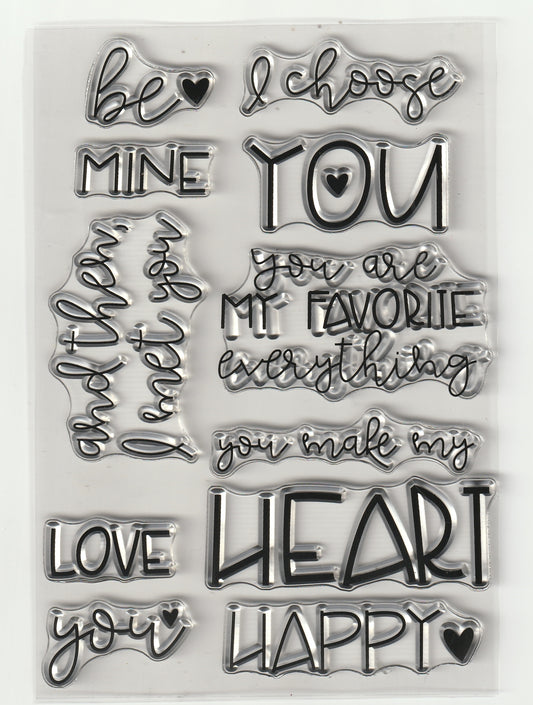 be
I choose
MINE
YOU
and then,
I met you
you are
MY FAVORITE
everything
you make my
HEART
LOVE
you
HAPPY